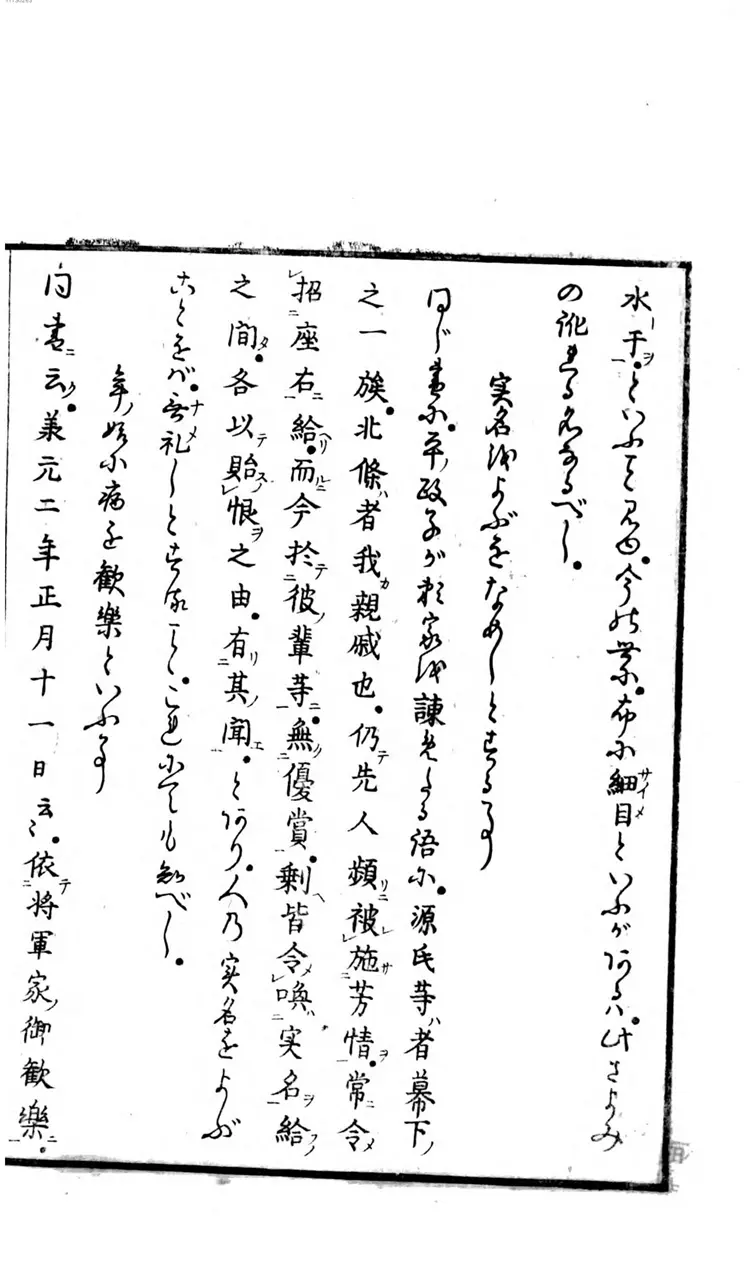 水干。といふこと見ゆ。今の世に。布に細目といふがあるハ。此さよみ
の訛れる名なるべし。
実名をよぶをなめしとする事
同じ書に。平政子が頼家を諫めたる語に。源氏等者幕下
之一族。北條者我親戚也。仍先人頻被施芳情。常令
招座右給。而今於彼輩等。無優賞。剰皆令喚実名給
之間。各以貽恨之由。有其聞。とあり。人乃実名をよぶ
ことをバ。無礼しとすること。これにても知べし。
年ノ始に病を歓樂といふ事
同書云。兼元二年正月十一日云々。依将軍家御歓樂。